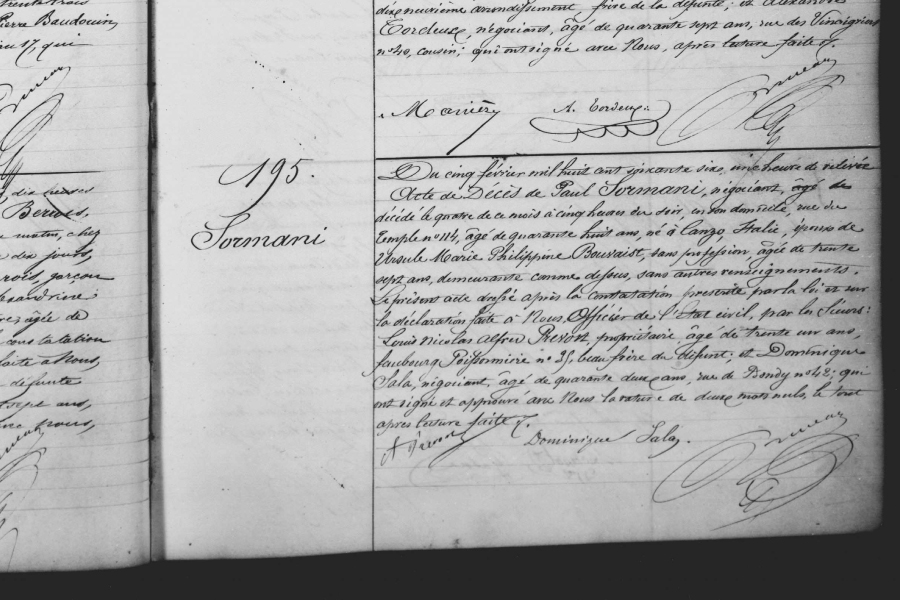 trente trois
Pierre Baudouin,
17, qui
dix heures
Berues,
matin, chez
dix jours,
garçon
âgée de
constatation
faite à Nous,
défunte
sept ans,
dix neuvième arrondissement, frère de la défunte; et Alexandre
Tordeux, négociant, âgé de quarante sept ans, rue des Vinaigriers
n° 40, cousin; qui ont signé avec Nous, après lecture faite.
A. Tordeux
195.
Sormani
Du cinq février mil huit cent soixante six, une heure de relevée
Acte de Décès de Paul Sormani, négociant, âgé de
décédé le quatre de ce mois à cinq heures du soir, en son domicile, rue du
Temple n° 114, âgé de quarante huit ans, né à Canzo, Italie, époux de
Ursule Marie Philippine Bouvaist, sans profession, âgée de trente
sept ans, demeurante comme dessus, sans autres renseignements.
Le présent acte dressé après la constatation prescrite par la loi et sur
la déclaration faite à Nous, Officier de l'Etat civil, par les Sieurs:
Louis Nicolas Alfred Prevost, propriétaire, âgé de trente un ans,
faubourg Poissonnière n° 35, beau frère du défunt; et Dominique
Sala, négociant, âgé de quarante deux ans, rue de Bondy n° 42; qui
ont signé et approuvé avec Nous la rature de deux mots nuls, le tout
après lecture faite.
A Prevost
Dominique Sala.